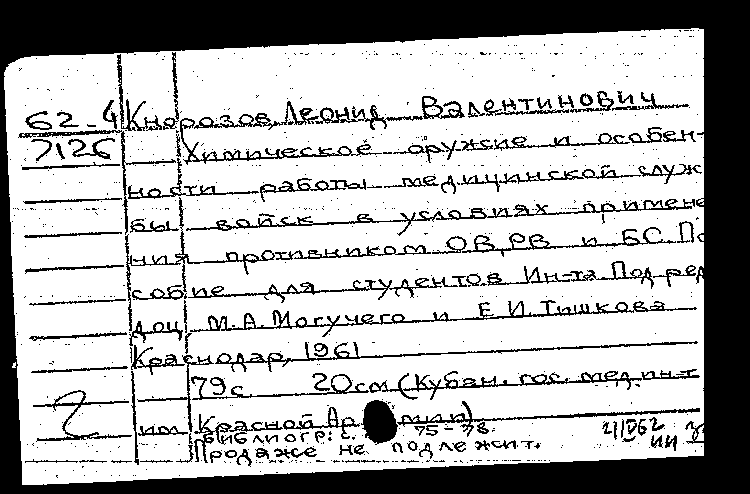 62-4 Кнорозов, Леонид Валентинович
7126 Химическое оружие и особен-
ности работы медицинской служ
бы войск в условиях примене
ния противником ОВ, РВ и БС. По
собие для студентов Ин-та. Под ред
доц. М.А. Могучего и Е.И. Тишкова
Краснодар, 1961
79с 20см (Кубан. гос. мед. ин-т
им Красной Армии)
Библиогр: с. 75-78.
Продаже не подлежит.